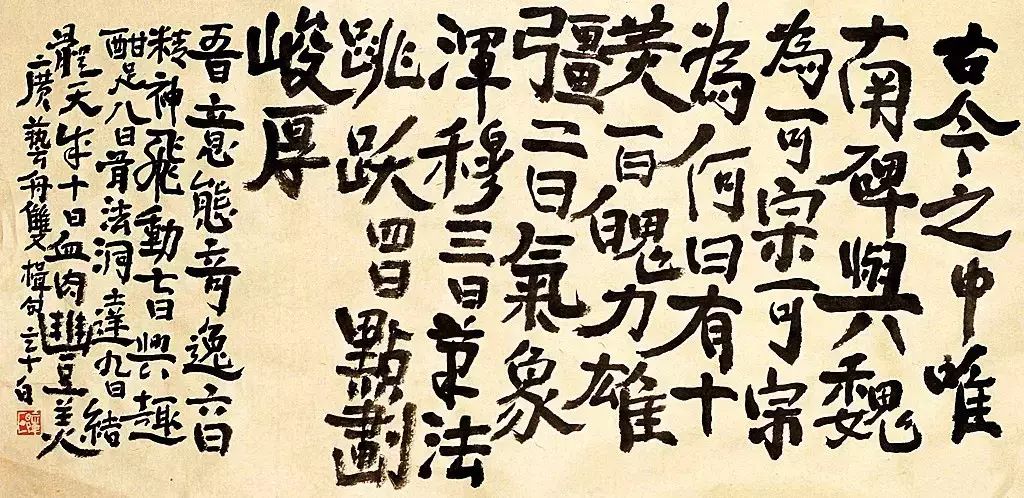 古今之中唯
南碑與魏
為可宗可宗
為何曰有十
美一曰魄力雄
彊二曰氣象
渾穆三曰筆法
跳跃四曰點劃
峻厚
五曰意態奇逸六曰
精神飛動七曰興趣
酣足八曰骨法洞達九曰結
體天成十曰血肉豐美
廣藝舟雙楫句